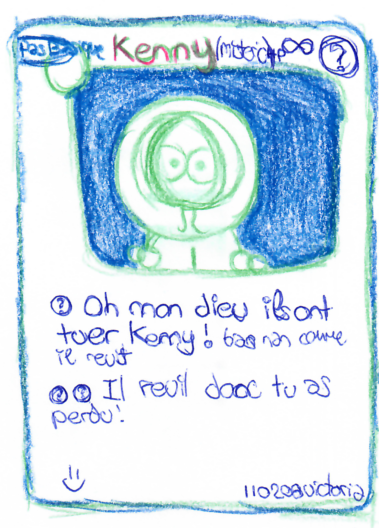 Pas Kenny (mystérion) HP ∞ ?
? Oh mon dieu ils ont
tuer Kenny ! bas nan comme
il revit
? ? Il revit donc tu as
perdu !